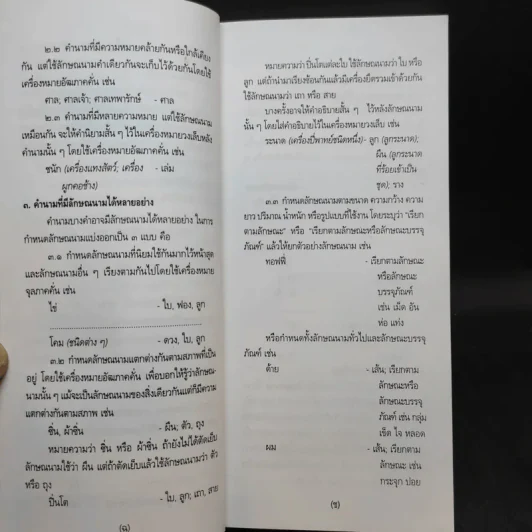 ๒.๒ คำนามที่มีความหมายคล้ายกันหรือใกล้เคียง
กัน แต่ใช้ลักษณนามคำเดียวกันจะเก็บไว้ด้วยกันโดยใช้
เครื่องหมายอัฒภาคคั่น เช่น
ศาล; ศาลเจ้า; ศาลเทพารักษ์ - ศาล
๒.๓ คำนามที่มีหลายความหมาย แต่ใช้ลักษณนาม
เหมือนกัน จะให้คำนิยามสั้น ๆ ไว้ในเครื่องหมายวงเล็บหลัง
คำนามนั้น ๆ โดยใช้เครื่องหมายอัฒภาคคั่น เช่น
ชนัก (เครื่องแทงสัตว์; เครื่อง - เล่ม
ผูกคอช้าง)
๓. คำนามที่มีลักษณนามได้หลายอย่าง
คำนามบางคำอาจมีลักษณนามได้หลายอย่าง ในการ
กำหนดลักษณนามแบ่งออกเป็น ๓ แบบ คือ
๓.๑ กำหนดลักษณนามที่นิยมใช้กันมากไว้หน้าสุด
และลักษณนามอื่น ๆ เรียงตามกันไปโดยใช้เครื่องหมาย
จุลภาคคั่น เช่น
ไข่ - ใบ, ฟอง, ลูก
โคม (ชนิดต่าง ๆ) - ดวง, ใบ, ลูก
๓.๒ กำหนดลักษณนามแตกต่างกันตามสภาพที่เป็น
อยู่ โดยใช้เครื่องหมายอัฒภาคคั่น เพื่อบอกให้รู้ว่าลักษณ-
นามนั้น ๆ แม้จะเป็นลักษณนามของสิ่งเดียวกันแต่ก็มีความ
แตกต่างกันตามสภาพ เช่น
ซิ่น, ผ้าซิ่น - ผืน; ตัว, ถุง
หมายความว่า ซิ่น หรือ ผ้าซิ่น ถ้ายังไม่ได้ตัดเย็บ
ลักษณนามใช้ว่า ผืน แต่ถ้าตัดเย็บแล้วใช้ลักษณนามว่า ตัว
หรือ ถุง
ปิ่นโต - ใบ, ลูก; เถา, สาย
(ฉ)
หมายความว่า ปิ่นโตแต่ละใบ ใช้ลักษณนามว่า ใบ หรือ
ลูก แต่ถ้านำมาเรียงซ้อนกันแล้วมีเครื่องยึดรวมเข้าด้วยกัน
ใช้ลักษณนามว่า เถา หรือ สาย
บางครั้งอาจให้คำอธิบายสั้น ๆ ไว้หลังลักษณนาม
นั้น ๆ โดยใส่คำอธิบายไว้ในเครื่องหมายวงเล็บ เช่น
ระนาด (เครื่องปี่พาทย์ชนิดหนึ่ง) - ลูก (ลูกระนาด);
ผืน (ลูกระนาด
ที่ร้อยเข้าเป็น
ชุด); ราง
๓.๓ กำหนดลักษณนามตามขนาด ความกว้าง ความ
ยาว ปริมาณ น้ำหนัก หรือรูปแบบที่ใช้งาน โดยระบุว่า "เรียก
ตามลักษณะ" หรือ "เรียกตามลักษณะหรือลักษณะบรรจุ
ภัณฑ์" แล้วให้ยกตัวอย่างลักษณนาม เช่น
ทอฟฟี่ - เรียกตามลักษณะ
หรือลักษณะ
บรรจุภัณฑ์
เช่น เม็ด อัน
ห่อ แท่ง
หรือกำหนดทั้งลักษณนามทั่วไปและลักษณะบรรจุ
ภัณฑ์ เช่น
ด้าย - เส้น; เรียกตาม
ลักษณะหรือ
ลักษณะบรรจุ
ภัณฑ์ เช่น กลุ่ม
เข็ด ไจ หลอด
ผม - เส้น; เรียกตาม
ลักษณะ เช่น
กระจุก ปอย
(ช)